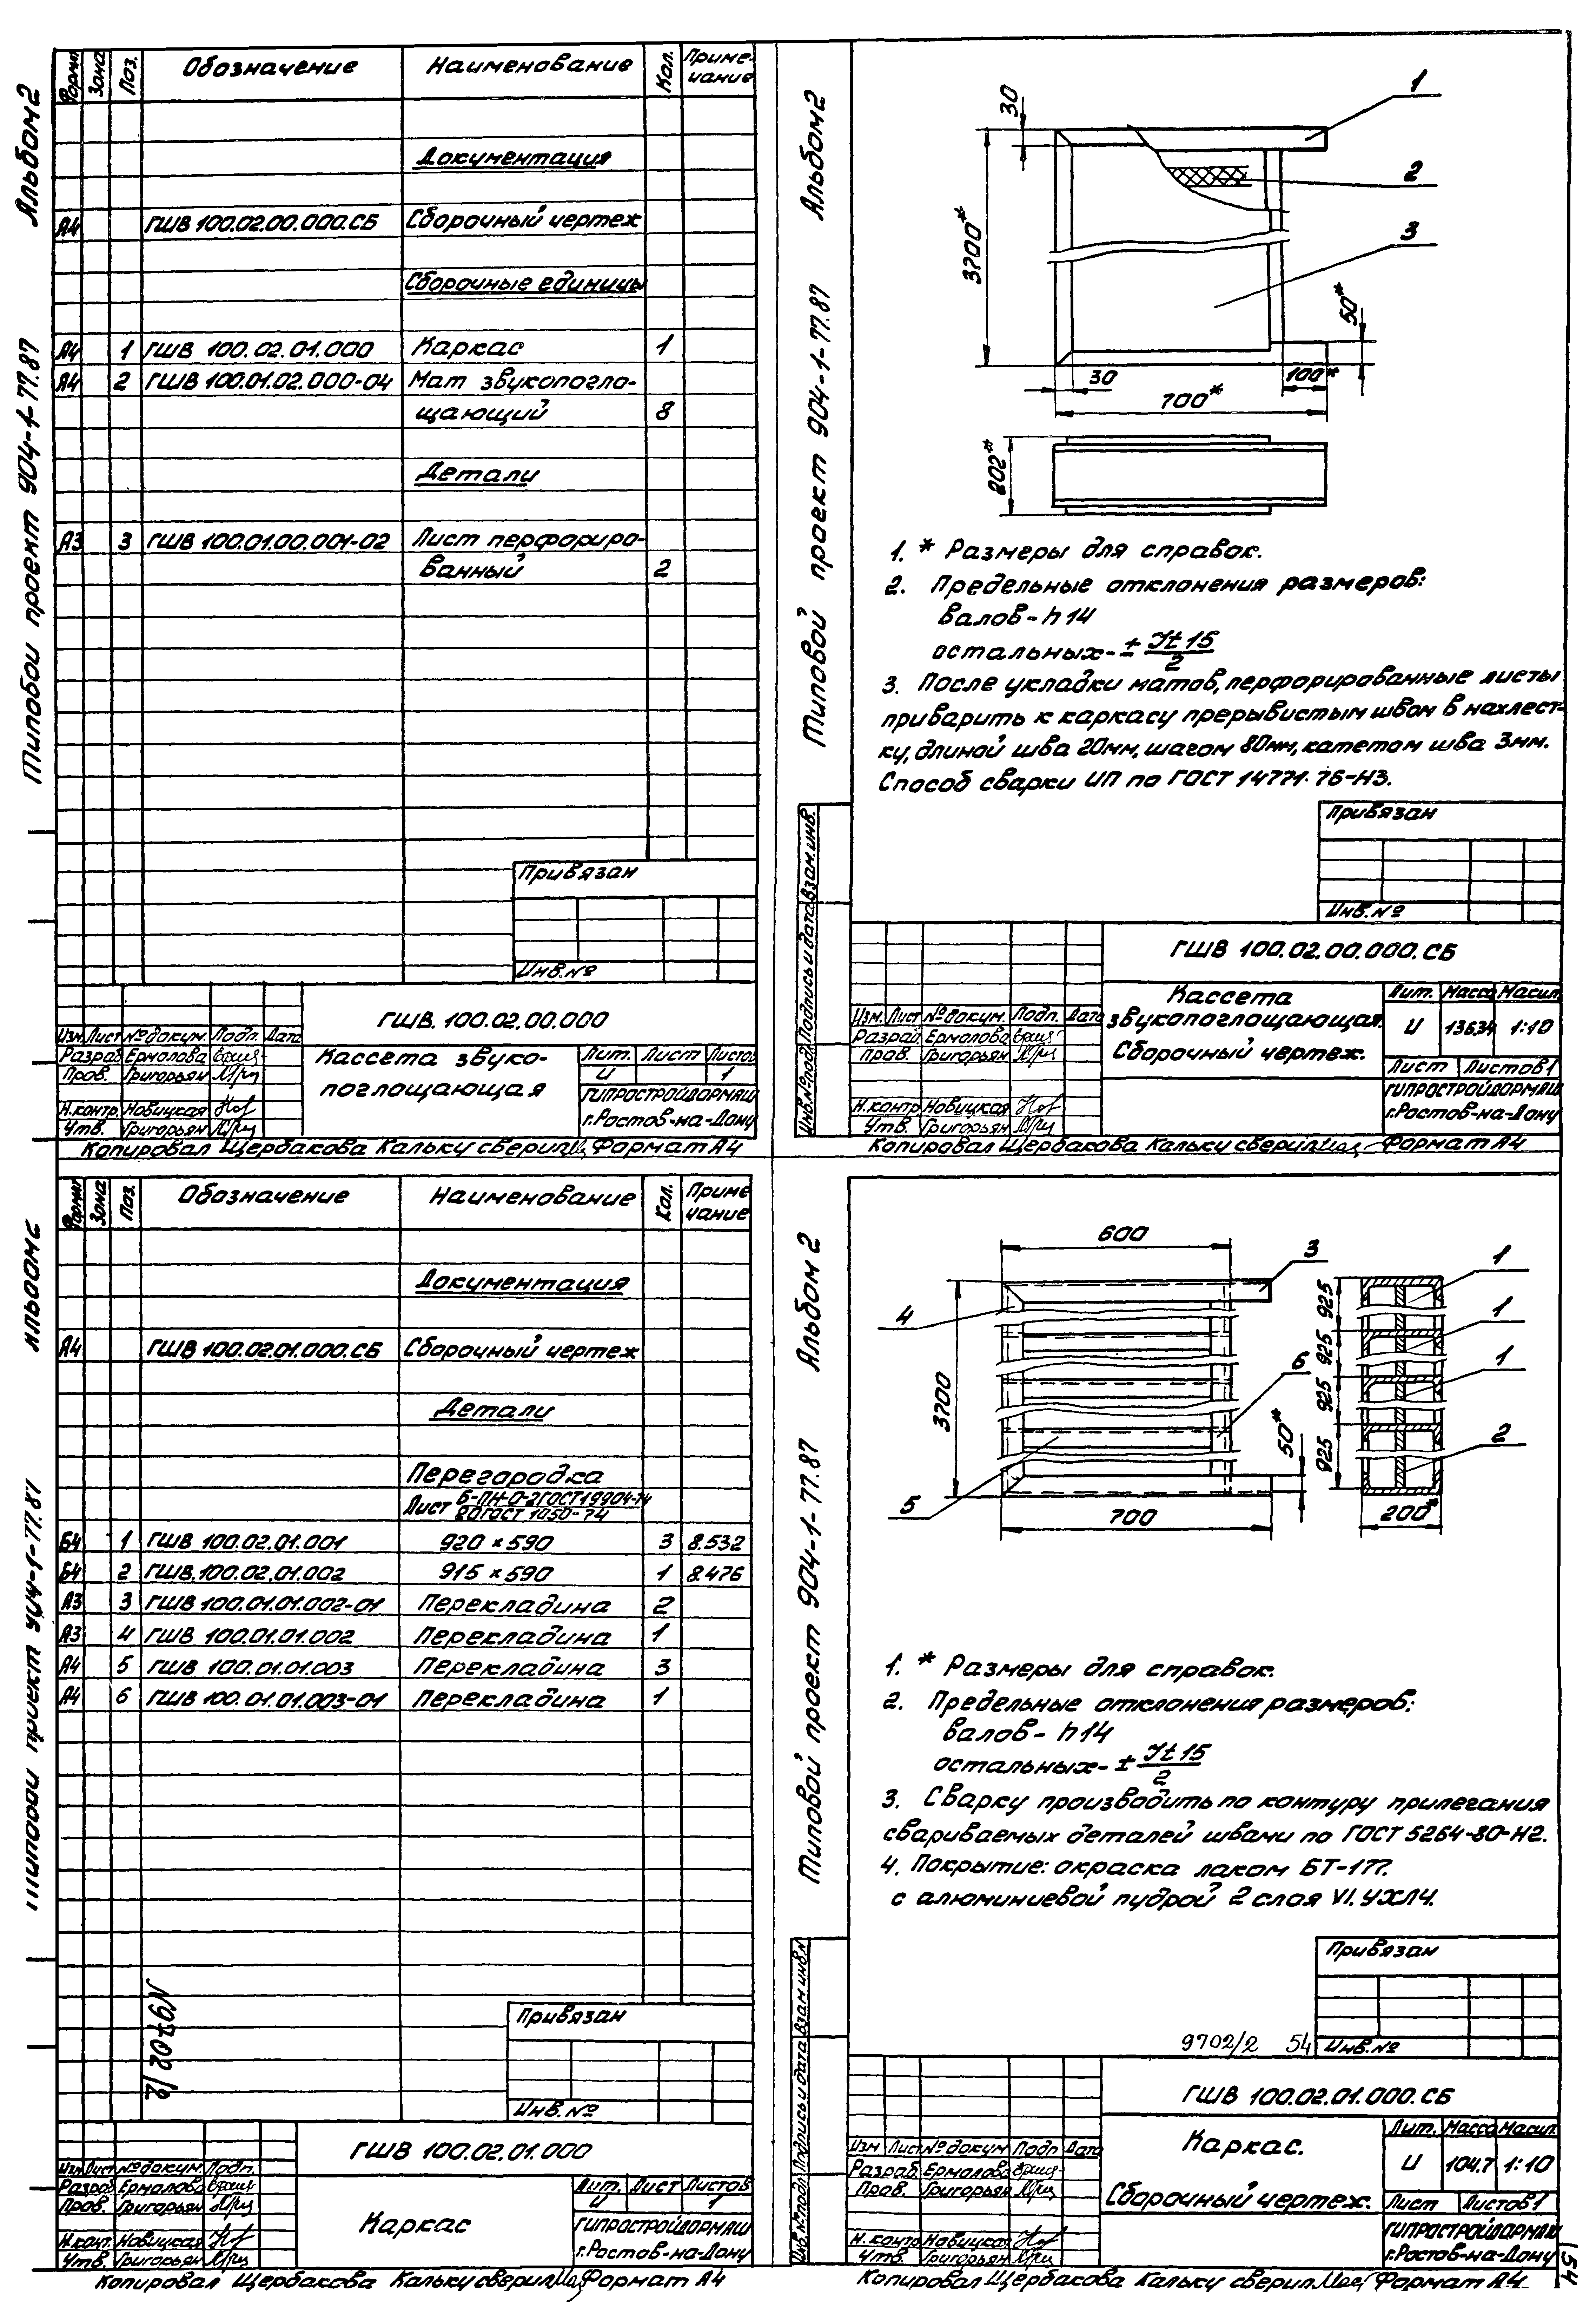 Альбом 2
Типовой проект 904-1-77.87
Формат Зона Поз. Обозначение Наименование Кол. Приме-
чание
Документация
А4 ГШВ 100.02.00.000.СБ Сборочный чертеж
Сборочные единицы
А4 1 ГШВ 100.02.01.000 Каркас 1
А4 2 ГШВ 100.01.02.000-04 Мат звукопогло-
щающий 8
Детали
А3 3 ГШВ 100.01.00.001-02 Лист перфориро-
ванный 2
Привязан
Инв.№
ГШВ.100.02.00.000
Изм. Лист № докум. Подп. Дата
Разраб Ермолова
Пров. Григорьян
Н.контр. Новицкая
Утв. Григорьян
Кассета звуко-
поглощающая
Лит. Лист Листов
И 1
ГИПРОСТРОЙДОРМАШ
г.Ростов-на-Дону
Копировал Щербакова Кальку сверил Формат А4
Альбом 2
Типовой проект 904-1-77.87
30
1
2
3
3700*
50*
30
100*
700*
202*
1. * Размеры для справок.
2. Предельные отклонения размеров:
валов - h14
остальных - ± It 15
2
3. После укладки матов, перфорированные листы
приварить к каркасу прерывистым швом в нахлест-
ку, длиной шва 20мм, шагом 80мм, катетом шва 3мм.
Способ сварки ИП по ГОСТ 14771-76-Н3.
Привязан
Инв.№
Инв.№подл. Подпись и дата Взам.инв.
ГШВ 100.02.00.000.СБ
Изм. Лист № докум. Подп. Дата
Разраб Ермолова
Пров. Григорьян
Н.контр Новицкая
Утв. Григорьян
Кассета
звукопоглощающая.
Сборочный чертеж.
Лит. Масса Масшт.
И 136.34 1:10
Лист Листов 1
ГИПРОСТРОЙДОРМАШ
г.Ростов-на-Дону
Копировал Щербакова Кальку сверил Формат А4
Альбом 2
Типовой проект 904-1-77.87
Формат Зона Поз. Обозначение Наименование Кол. Приме
чание
Документация
А4 ГШВ 100.02.01.000.СБ Сборочный чертеж
Детали
Перегородка
Лист Б-ПН-О-2 ГОСТ 19904-74
20 ГОСТ 1050-74
Б4 1 ГШВ 100.02.01.001 920 × 590 3 8.532
Б4 2 ГШВ.100.02.01.002 915 × 590 1 8.476
А3 3 ГШВ 100.01.01.002-01 Перекладина 2
А3 4 ГШВ 100.01.01.002 Перекладина 1
А4 5 ГШВ 100.01.01.003 Перекладина 3
А4 6 ГШВ 100.01.01.003-01 Перекладина 1
N9702/2
Привязан
Инв.№
ГШВ 100.02.01.000
Изм Лист № докум Подп.
Разраб Ермолова
Пров. Григорьян
Н.конт. Новицкая
Утв. Григорьян
Каркас
Лит. Лист Листов
И 1
ГИПРОСТРОЙДОРМАШ
г.Ростов-на-Дону
Копировал Щербакова Кальку сверил Формат А4
Альбом 2
Типовой проект 904-1-77.87
600
3
4
3700
6
5
50*
700
1
1
1
2
925
925
925
925
200*
1. * Размеры для справок.
2. Предельные отклонения размеров:
валов - h14
остальных - ± It 15
2
3. Сварку производить по контуру прилегания
свариваемых деталей швами по ГОСТ 5264-80-Н2.
4. Покрытие: окраска лаком БТ-177.
с алюминиевой пудрой 2 слоя VI. УХЛ4.
Привязан
9702/2 54 Инв.№
Инв.№подл Подпись и дата Взам инв.№
ГШВ 100.02.01.000.СБ
Изм Лист № докум Подп Дата
Разраб Ермолова
Пров. Григорьян
Н.контр Новицкая
Утв. Григорьян
Каркас.
Сборочный чертеж.
Лит. Масса Масшт.
И 104.7 1:10
Лист Листов 1
ГИПРОСТРОЙДОРМАШ
г.Ростов-на-Дону
Копировал Щербакова Кальку сверил Формат А4
54